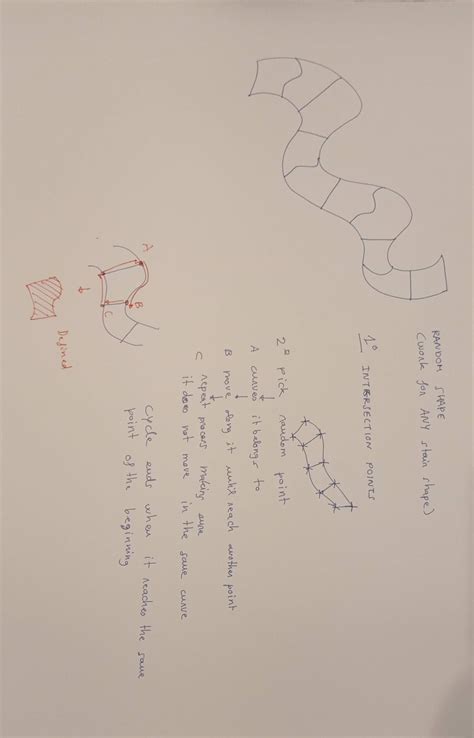 RANDOM SHAPE
(WORK for ANY stair shape)
1º INTERSECTION POINTS
2º pick random point
A curves it belongs to
B move along it until reach another point
C repeat process making sure
it does not move in the same curve
Cycle ends when it reaches the same
point of the beginning
A
B
C
Defined